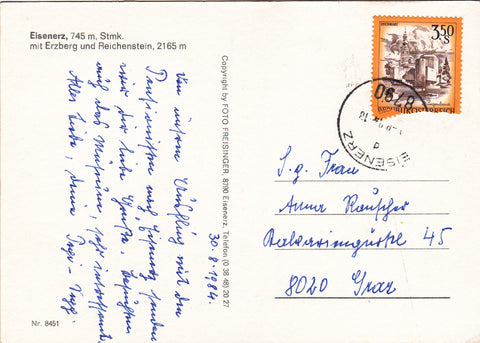 Eisenerz, 745 m, Stmk.
mit Erzberg und Reichenstein, 2165 m
30.8.1984.
Von unserem Ausflug mit den
Pensionisten nach Eisenerz senden
wir dir liebe Grüße
auch das Museum, sehr interessant.
Alles Liebe, deine
Nr. 8451
Copyright by FOTO FREISINGER, 8790 Eisenerz, Telefon (0 38 48) 20 27
3.50
S
REPUBLIK ÖSTERREICH
8790
EISENERZ
S. g. Frau
Anna Rauscher
45
8020 Graz